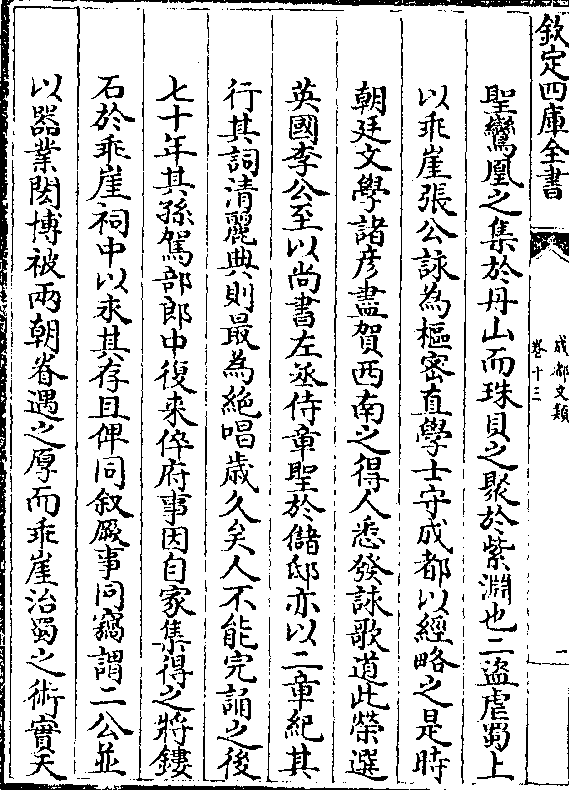 欽定四庫全書
成都文類
卷十三
一
聖鸞凰之集於丹山而珠貝之聚於紫淵也二盜虐蜀上
以乖崖張公詠為樞密直學士守成都以經略之是時
朝廷文學諸彥盡賀西南之得人悉發詠歌道此榮選
英國李公至以尚書左丞侍章聖於儲邸亦以二章紀其
行其詞清麗典則最為絶唱歲久矣人不能完誦之後
七十年其孫駕部郎中復来倅府事因自家集得之將鏤
石於乖崖祠中以永其存且俾同叙厥事同竊謂二公並
以器業閎博被兩朝眷遇之厚而乖崖治蜀之術實天